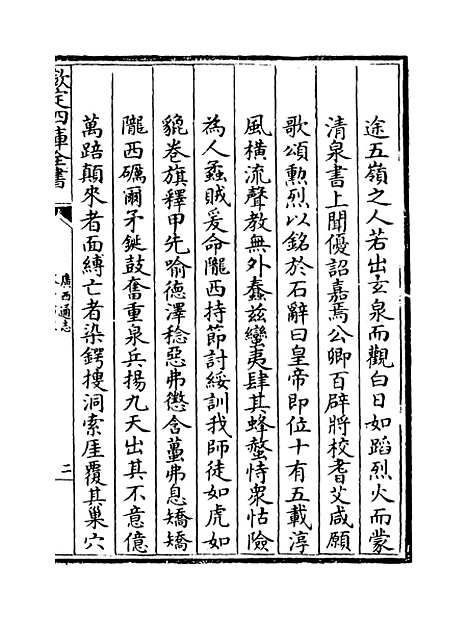 途五嶺之人若出玄泉而觀白日如蹈烈火而蒙
清泉書上聞優詔嘉焉公卿百辟將校耆艾咸願
歌頌勲烈以銘於石辭曰皇帝即位十有五載淳
風橫流聲教無外蠢兹蠻夷肆其蜂螫恃衆怙險
為人蟊賊爰命隴西持節討綏訓我師徒如虎如
貔卷旗釋甲先喻德澤稔惡弗懲含蠆弗息矯矯
隴西礪爾矛鋋鼓奮重泉兵揚九天出其不意億
萬踣顛來者面縛亡者染鍔摟洞索厓覆其巢穴
欽定四庫全書
廣西通志
三